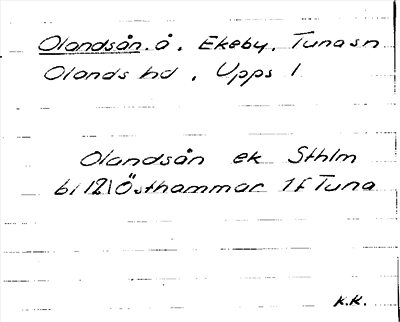 Olandsån. å. Ekeby, Tuna sn
Olands hd. Upps l
Olandsån ek Sthlm
bl 12I Östhammar 1f Tuna
K.K.